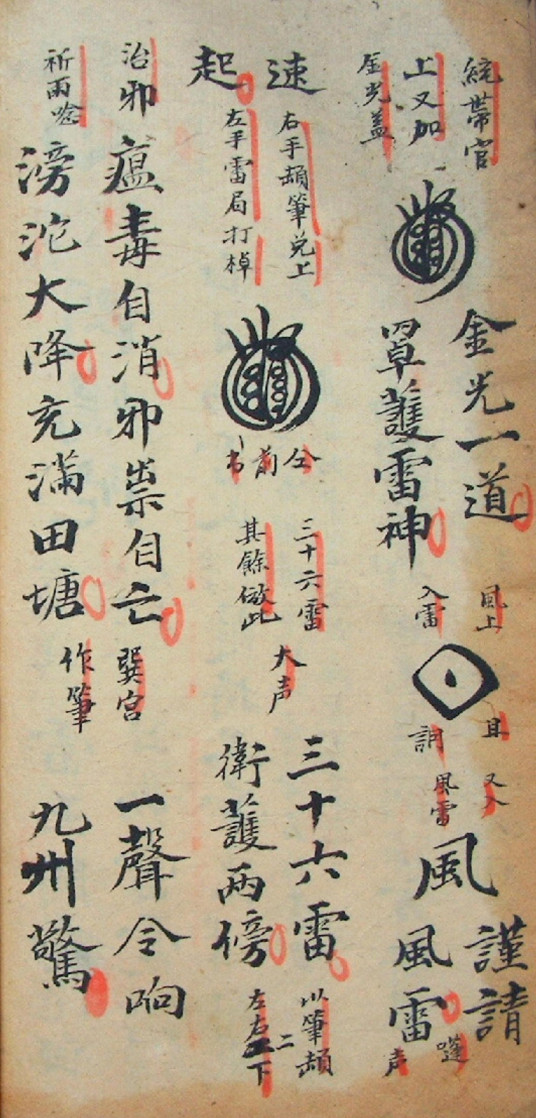 統帶官
上又加
金光蓋
金光一道
罩護雷神
風上
入雷
風
謹請
風雷
声
速
起
右手顿筆兌上
左手雷局打棹
仝前書
三十六雷
其餘倣此
大声
三十六雷
衛護兩傍
以筆顿
左右二下
治邪瘟毒自消邪祟自亡
祈雨唸滂沱大降充滿田塘
巽宮
作筆
一聲令响
九州驚